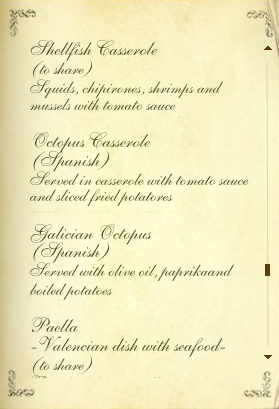 Shellfish Casserole
(to share)
Squids, chipirones, shrimps and
mussels with tomato sauce
Octopus Casserole
(Spanish)
Served in casserole with tomato sauce
and sliced fried potatores
Galician Octopus
(Spanish)
Served with olive oil, paprikaand
boiled potatoes
Paella
-Valencian dish with seafood-
(to share)